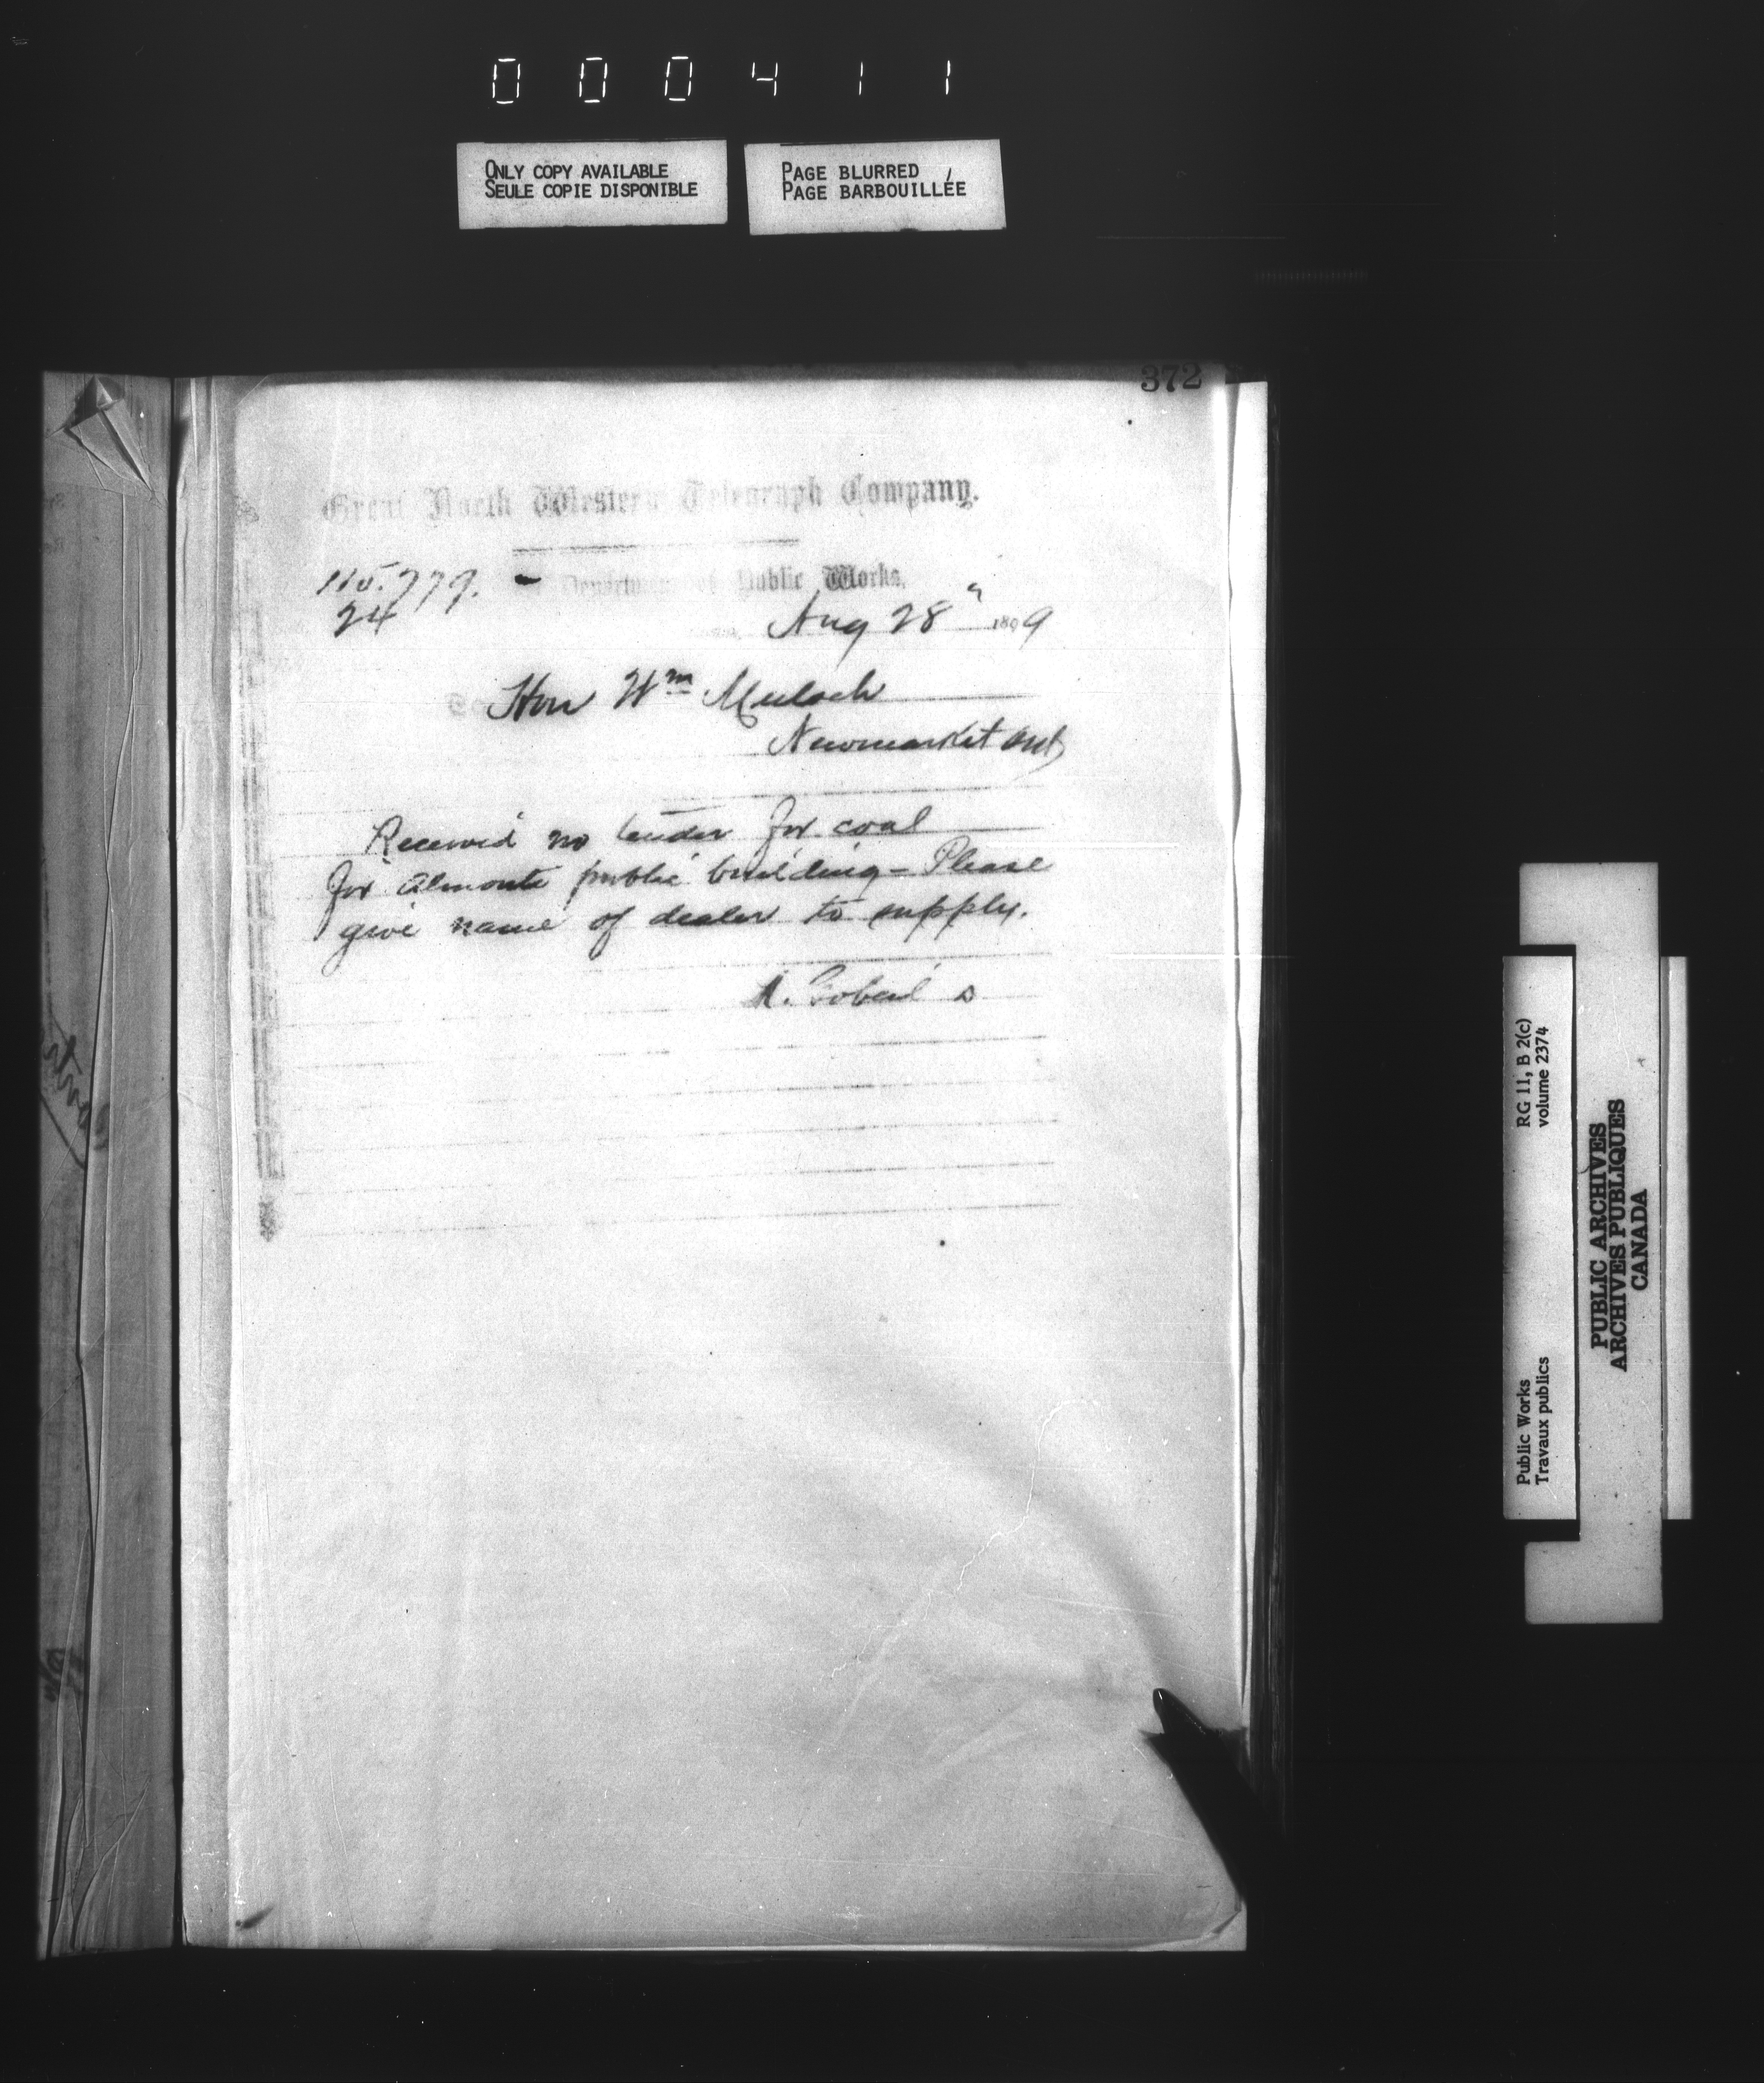 000411
ONLY COPY AVAILABLE
SEULE COPIE DISPONIBLE
PAGE BLURRED
PAGE BARBOUILLÉE
372
Great North Western Telegraph Company.
115.779. - Department of Public Works,
24
Aug 28" 1899
To Hon Wm Mulock
Newmarket Ont
Received no tender for coal
for Almonte public building - Please
give name of dealer to supply.
A. Gobeil s
Public Works
Travaux publics
RG 11, B 2(c)
volume 2374
PUBLIC ARCHIVES
ARCHIVES PUBLIQUES
CANADA